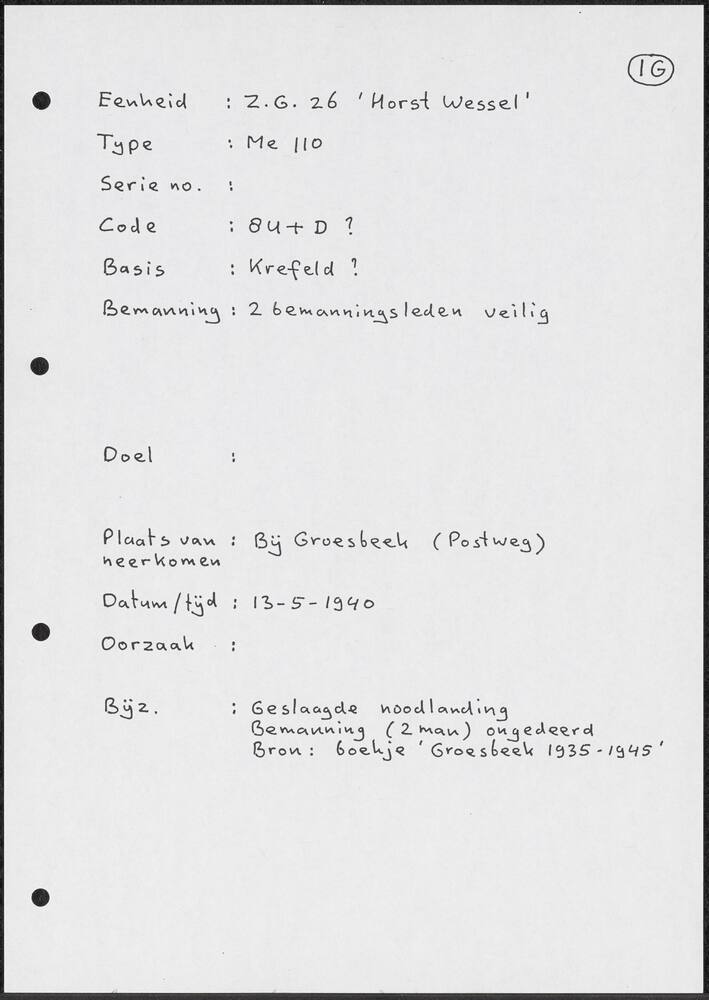 1G
Eenheid : Z.G. 26 'Horst Wessel'
Type : Me 110
Serie no. :
Code : 8U+D ?
Basis : Krefeld ?
Bemanning : 2 bemanningsleden veilig
Doel :
Plaats van : Bij Groesbeek (Postweg)
neerkomen
Datum/tijd : 13-5-1940
Oorzaak :
Bijz. : Geslaagde noodlanding
Bemanning (2 man) ongedeerd
Bron : boekje 'Groesbeek 1935-1945'